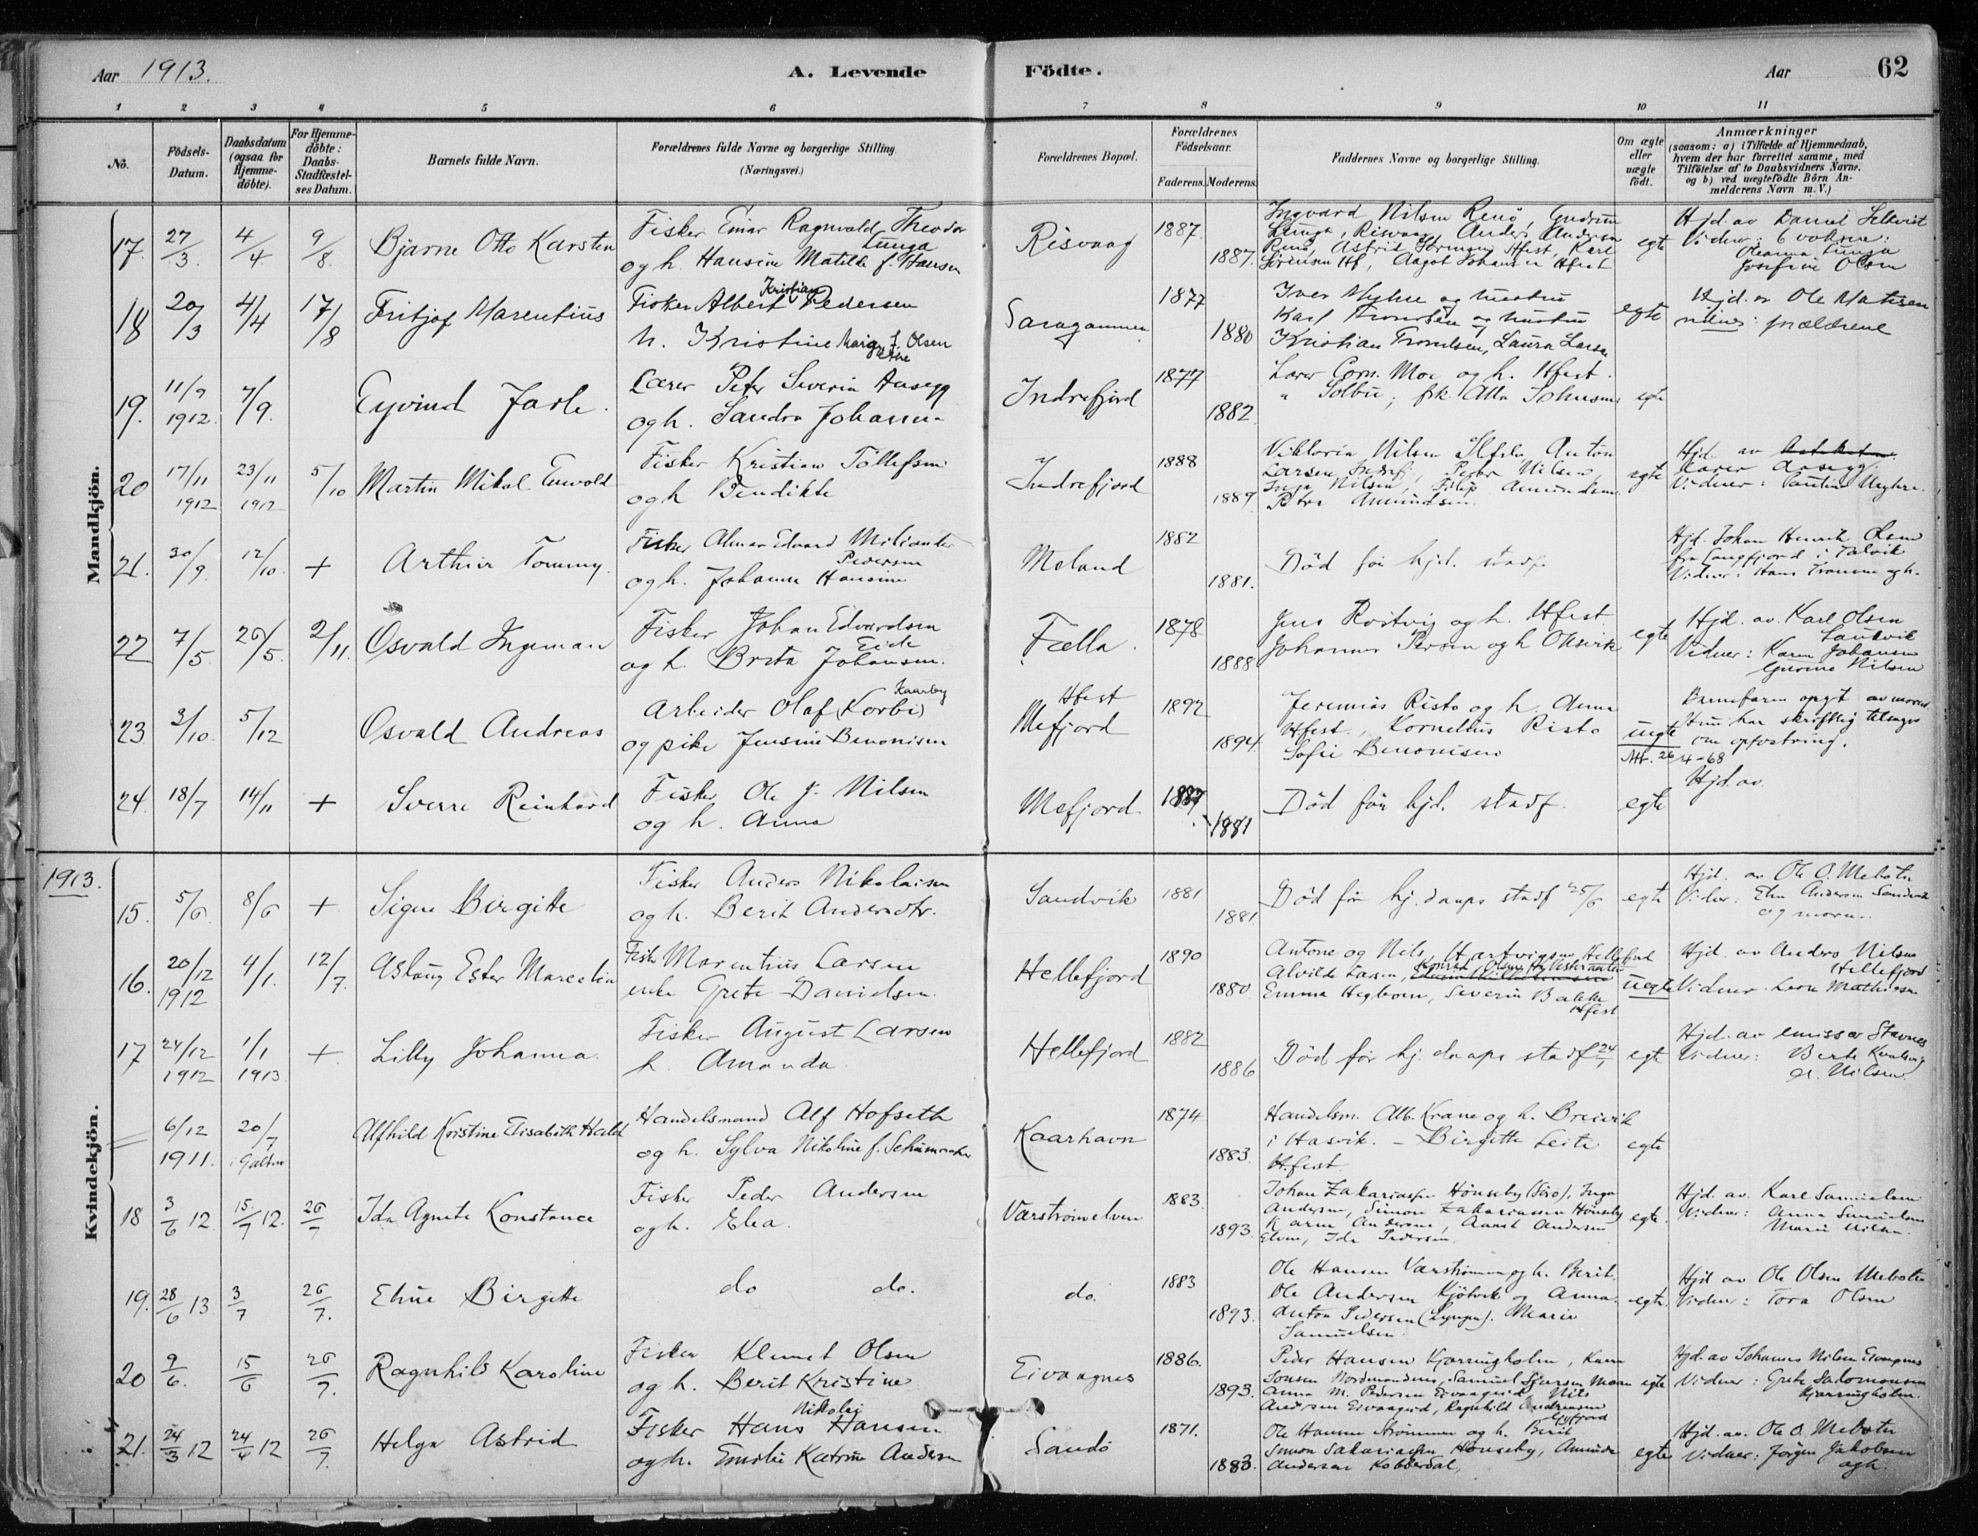 Aar 1913.
A. Levende Födte.
Aar
62
1 2 3 4 5 6 7 8 9 10 11
Nö.
Födsels-Datum.
Daabsdatum (ogsaa for Hjemme-döbte).
For Hjemme-döbte: Daabs-Stadfæstel-ses Datum.
Barnets fulde Navn.
Forældrenes fulde Navne og borgerlige Stilling (Næringsvei.)
Forældrenes Bopæl.
Forældrenes Födselsaar.
Faderens. Moderens.
Faddernes Navne og borgerlige Stilling.
Om ægte eller uægte födt.
Anmærkninger
(saasom: a) i Tilfælde af Hjemmedaab,
hvem der har forrettet samme, med
Tilföielse af to Daabsvidners Navne.
og b) ved uægtefödte Börn An-
melderens Navn m. V.)
Mandkjön.
17. 27/3. 4/4 9/8. Bjarne Otto Karsten
Fisker Einar Ragnvald Theodor
Lunga
og h. Hansine Matilde f. Hansen
Risvaag 1887. 1887.
Ingvard Nilsen Renö, Gudrun
Lunga, Risvaag, Anders Andersen
Renö, Astrid Hfest, Karl
Sörensen Hf, Aagot Johansen Hfest
egte
Hjd. av Daniel
Vidner: 6 voksne:
Oleanna Lunga
Josefine Olsen
18 20/3 4/4 17/8 Fritjof Marentius
Fisker Albert Kristian Pedersen
h. Kristine Margrethe f. Olsen
1877 1880
Iver Myhre og hustru
Karl og hustru
Kristian Trondsen, Laura Larsen
egte
Hjd. av Ole Matisen
vidner: forældrene
19. 11/9 1912. 7/9. Eyvind Jarle.
Lærer Peter Severin Aasegg
og h. Sandra Johanna
Indrefjord 1877 1882.
Lærer Corn. Moe og h. Hfest.
" Solbu; frk. Alla Johnsen
egte
20 17/11 1912 23/11 1912 5/10 Martin Mikal Enevold
Fisker Kristian Töllefsen
og h Bendikte
Indrefjord 1888 1889
Viktoria Nilsen Anton
Larsen Indref, Peder Nilsen,
Inga Nilsen, Filip Amundsen
Petra Amundsen.
egte
Hjd. av
Lærer Aasegg.
Vidner: Myhre.
21. 30/9. 12/10. + Arthur Tommy.
Fisker Edvard
Pedersen
og h. Johanne Hansine
Meland 1882 1881.
Död för hjd. stadf.
Hjd. Johan Henrik Olsen
fra Langfjord i Talvik
Vidner: Hans og h.
22 7/5. 20/5. 2/11. Osvald Ingeman
Fisker Johan Edvardsen
Eide
og h. Brita Johansen.
Fælla. 1878. 1888
Jens Rostvig og h. Hfest
Johannes og h Oksvik
egte
Hjd. av Karl Olsen
Vidner: Karen Johansen
Nilsen
23 3/10. 5/12 Osvald Andreas
Kaarby
Arbeider Olaf (Korbi)
og pike Jensine Benonisen
Hfest
Mefjord 1892 1894
Jeremias Risto og h. Anna
Hfest., Kornelius Risto
Sofie Benonisen
uegte
Att. 26/4-68
Barnefaren opgit av moren.
Hun har skriftlig tilsagn
om opfostring.
24. 18/7 14/11 + Sverre Reinhard
Fisker Ole J. Nilsen
og h. Anna
Mefjord 1887. 1881
Död för hjd. stadf.
egte
Hjd. av
1913.
Kvindekjön.
15. 5/6. 8/6 + Signe Birgitte
Fisker Anders Nikolaisen
og h. Berit Andersdtr.
Sandvik 1881 1881.
Död för hj. daaps stadf 25/6
egte
Hjd. av Ole O. Mebotn
Vidner: Elen Andersen Sandvik
og moren.
16. 20/12 1912 4/1. 12/7. Aslaug Ester Marcelie
Fisker Marentius Larsen
enke Grete Danielsen.
Hellefjord 1890 1880.
Antone og Nils Hartvigsen Hellefjord
Alvilde Larsen, Konrad Olsen
Emma Hegbom, Severin Bakke
Hfest
uegte
Hjd. av Anders Nilsen
Hellefjord
Vidner. Mathisen
17 24/12 1912 1/1 1913 + Lilly Johanna.
Fisker August Larsen
h. Amanda.
Hellefjord 1882 1886
Död för hj. daaps stadf 24/
egt
Hjd. av emissær Stavnes
Vidner: Berte
Nilsen.
6/12 1911. 20/7 i Galten Alfhild Kristine Elisabeth Hald
Handelsmand Alf Hofseth
og h. Sylva Nikoline f. Schumacher
Kaarhavn 1874 1883.
Handelsm. Alb. Krane og h. Breivik
i Hasvik. – Birgitte Leite
Hfest
egte
18 3/6 12 15/7 12. 26/7 Ida Agnete Konstance
Fisker Peder Andersen
og h. Elea.
Værströmelven 1883. 1893.
Johan Zakariassen Hönseby (Sörö), Inga
Andersen, Simon Zakariassen Hönseby
Karen Andersen, Andersen
Elven, Ida Pedersen.
egte.
Hjd. av. Karl Samuelsen
Vidner: Anna Samuelsen
Marie Nilsen.
19. 28/6 13 3/7 26/7. Eline Birgitte
do do.
do. 1883 1893.
Ole Hansen Værströmmen og h. Berit.
Ole Andersen og Anna
Anton Pedersen (Lyngen). Marie
Samuelsen.
egte.
Hjd av Ole Olsen Mebotn
Vidner: Tora Olsen
20 9/6. 15/6 26/7. Ragnhild Karoline
Fisker Klemet Olsen
og h. Berit Kristine
Eivaagnes 1886. 1893.
Peder Hansen Kjærringholm, Karen
Jonsen Nordmandnes, Samuel
Anna M. Pedersen Eivaagnes, Nils
Andersen Eivaagnes, Ragnhild Andreassen
egte
Hjd. av Johannes Nilsen Eivagnes
Vidner: Grete Salomonsen
Kjærringholm.
21. 24/3 12 24/4 12 26/7 Helga Astrid
Fisker Hans Nikolai Hansen
og h. Emilie Katrine Andersen
Sandö 1871. 1883.
Ole Hansen Strömmen og h. Berit
Simon Sakariassen Hönseby, Amunda
Andersen Kobberdal,
egte
Hjd. av. Ole O. Mebotn
Vidner: Jörgen Jakobsen
og h.